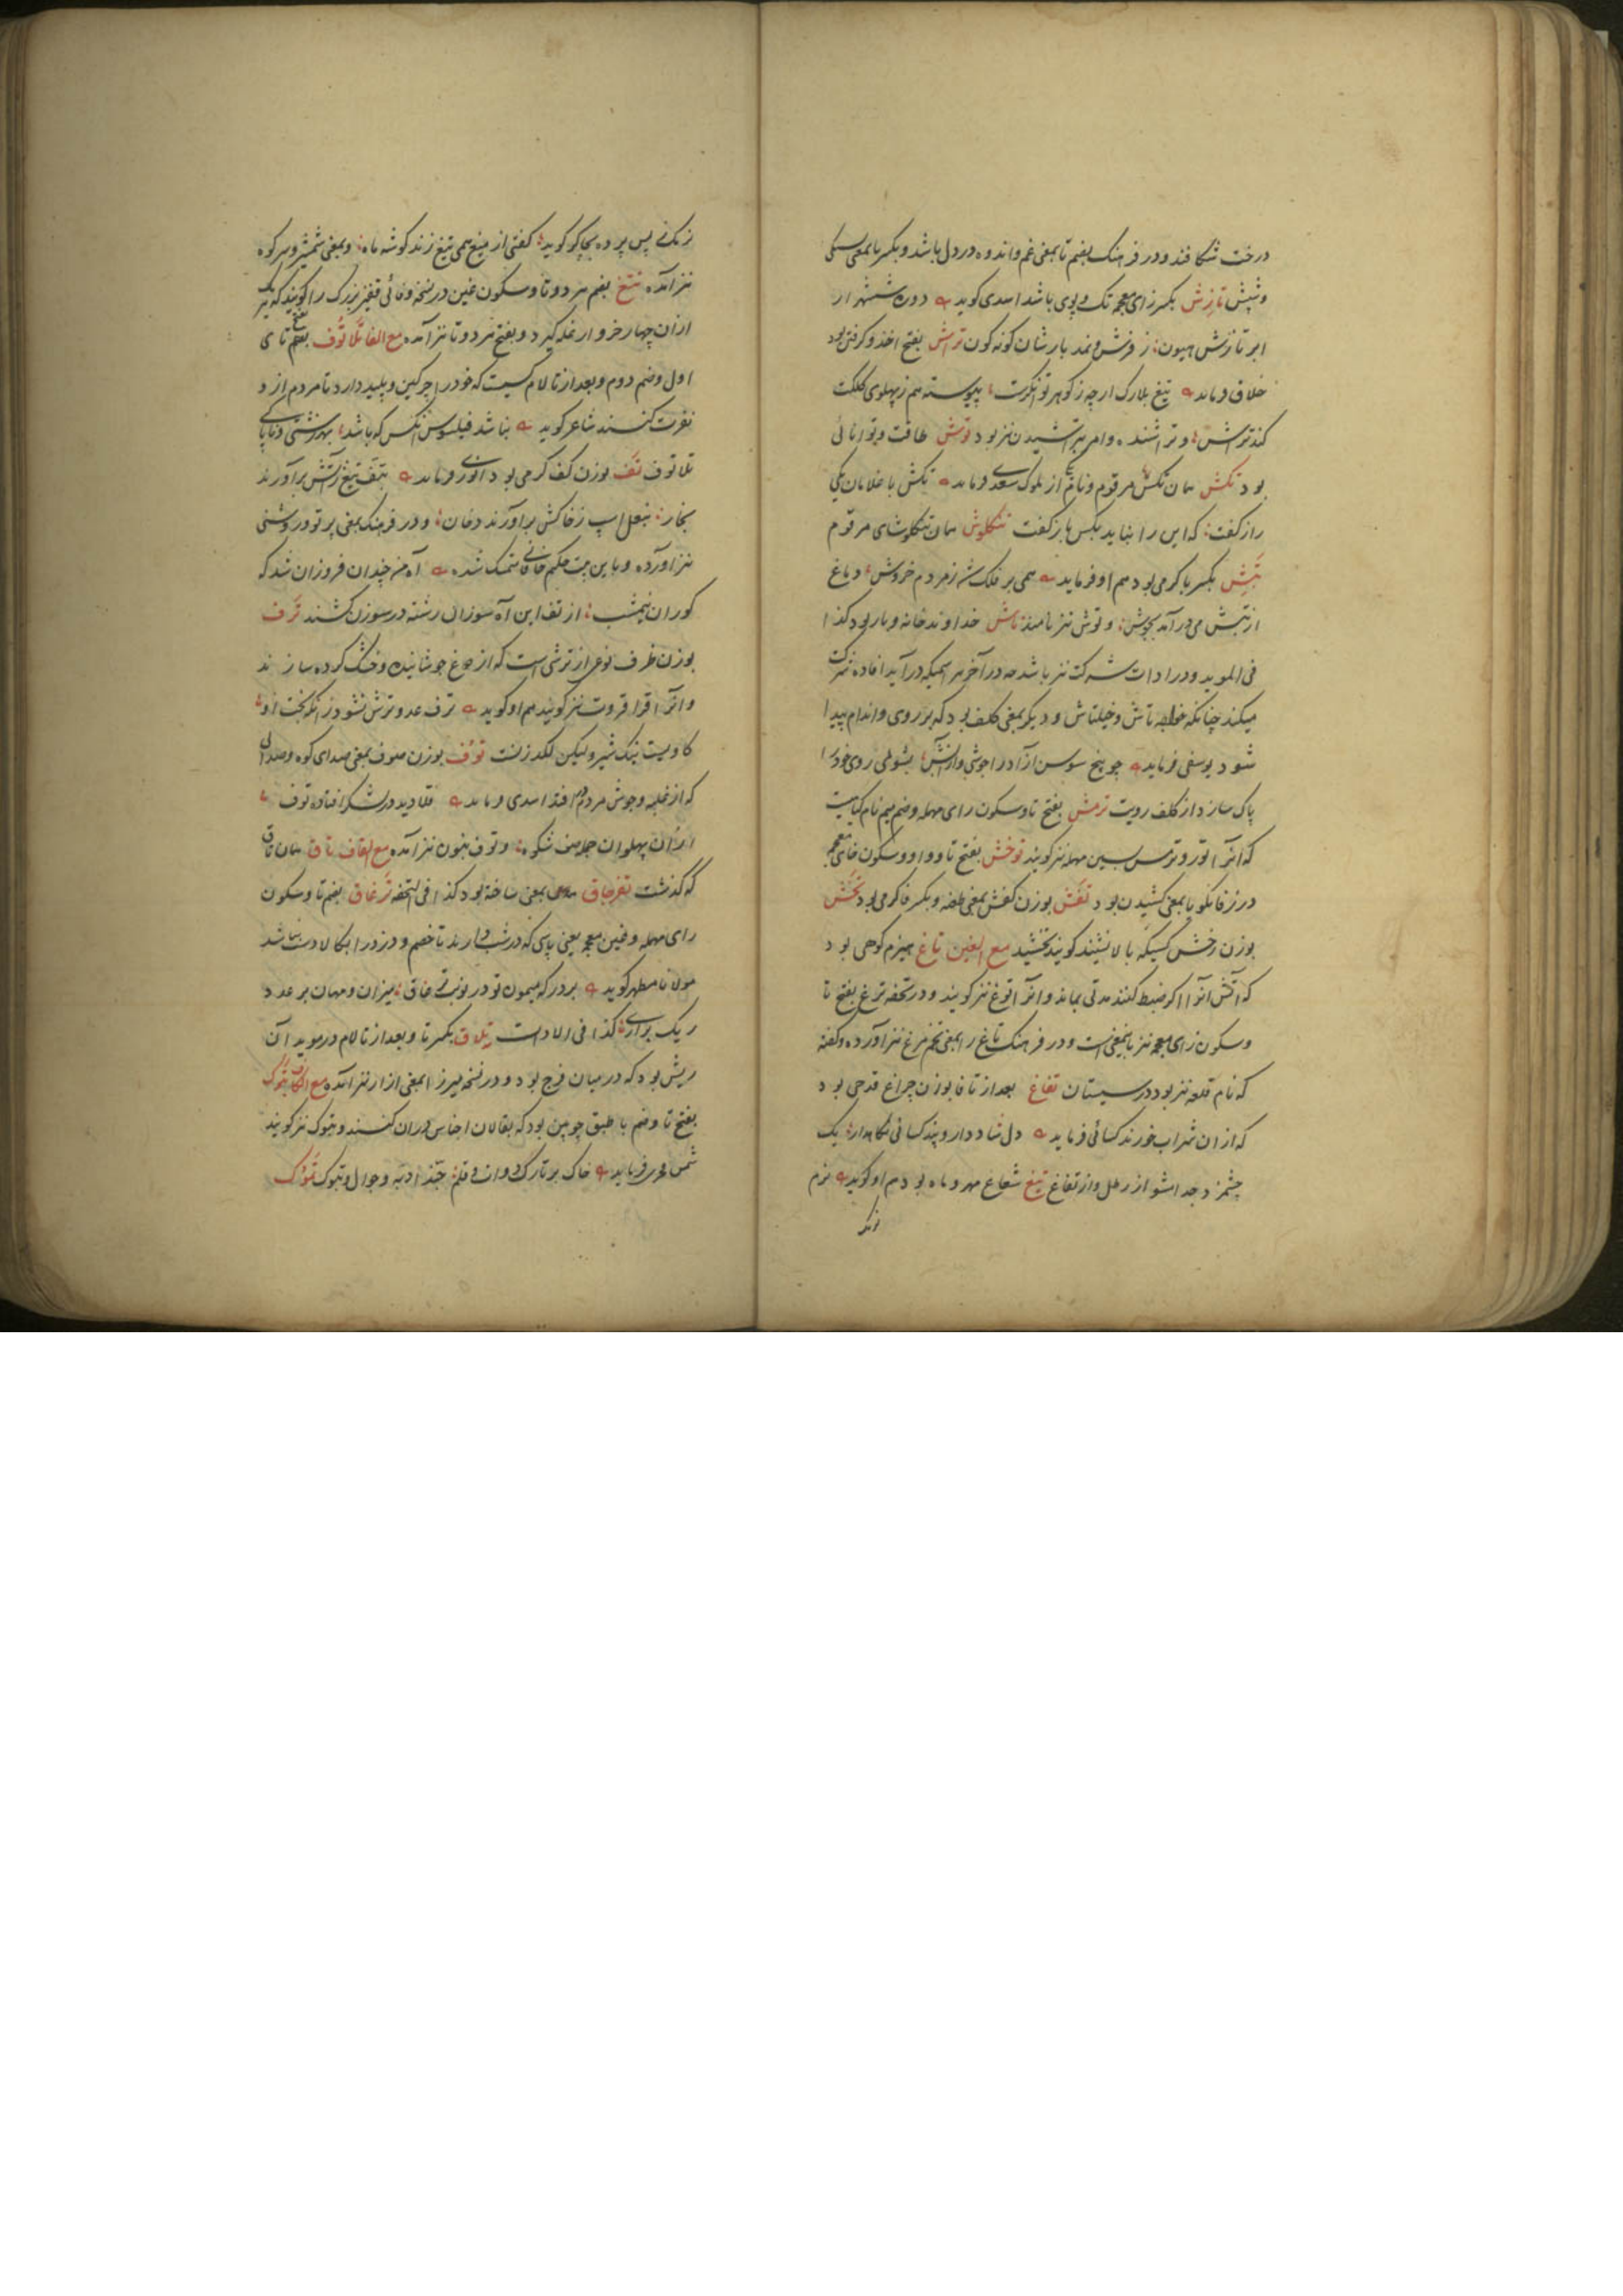 درخت شکافند و در فرهنک بفتم تا بمعنی غم و اندوه در دل باشد و بکسر با بمعنی
و شپش تازش بکسر زای معجمه تک و پوی باشد اسدی کوید
ابر تازش هیون ز فرش و نمد بار شان کونه کون ترش بفتح اخذ و کرفتن بود
خلاق فرماید تیغ بلارک ار چه ز کوهر توانکرست پیوسته هم ز پهلوی کلکت
کند توش و تراشنده و امر بتراشیدن نیز بود توش طاقت و توانائی
بود تکش همان تکش مرقوم و نام از ملوک سعدی فرماید تکش با غلامان یکی
راز کفت که این را نباید بکس باز کفت تنکلوش همان تنکلوشای مرقوم
تبش بکسر با کرمی بود هم او فرماید همی بر فلک شد ز مردم خروش دماغ
از تبش می در آمد بجوش و توش نیز نامند تاش خداوند خانه و یار بود کذا
فی الموید و در ادات شرکت نیز باشد چه در آخر هر اسمیکه در آید افاده شرکت
میکند چنانکه خواجه تاش و خیلتاش و دیکر بمعنی کلف بود که بر روی و اندام پیدا
شود یوسفی فرماید چو بیخ سوسن آزاد را جوشی و از آتش بشوئی روی خود را
پاک سازد از کلف رویت ترمش بفتح تا و سکون رای مهمله و ضم میم نام کیاهیست
که انرا تور و ترمس بسین مهمله نیز کویند توخش بفتح تا و واو و سکون خای معجمه
در زفانکویا بمعنی کشیدن بود تفش بوزن کفش بمعنی طعنه و بکسر فا کرمی بود تخش
بوزن رخش کسیکه بالا نشیند کویند تخشید مع الغین تاغ هیزم کوهی بود
که آتش انرا اکر ضبط کنند مدتی بماند و انرا توغ نیز کویند و در تحفه ترغ بفتح تا
و سکون زای معجمه نیز باینمعنی است و در فرهنک تاغ را بمعنی تخم مرغ نیز آورده و کفته
که نام قلعه نیز بود در سیستان تفاغ بعد از تا فا بوزن چراغ قدحی بود
که از ان شراب خورند کسائی فرماید دل شاد دار و پند کسائی نکاهدار یک
چشم زد جدا مشو از رطل و از تفاغ تیغ شعاع مهر و ماه بود هم او کوید نرم
نرمک ز پس پرده بچاکر کوید کفتی از میغ همی تیغ زند کوشه ماه و بمعنی شمشیر و سر کوه
نیز آمده تتغ بضم هر دو تا و سکون غین در نسخه وفائی قفیز بزرک را کویند که هر یک
از ان چهار خروار غله کیرد و بفتح هر دو تا نیز آمده مع الفا تلاتوف بفتح تای
اول و ضم دوم و بعد از تا لام کسیست که خود را چرکین و پلید دارد تا مردم از و
نفرت کنند شاعر کوید نباشد فیلسوف آنکس که باشد بهر زشتی و ناپاکی
تلاتوف تف بوزن کف کرمی بود انوری فرماید بتف تیغ ز آتش برآورند
بخار بنعل اسب ز خاکش برآورند دخان و در فرهنک بمعنی پرتو و روشنی
نیز اورده و باین بیت حکیم خاقانی متمسک شده آه من چندان فروزان شد که
کوران نیمشب از تف این آه سوزان رشته در سوزن کشند ترف
بوزن ظرف نوعی از ترشی است که از دوغ جوشانیده و خشک کرده سازند
و انرا قراقروت نیز کویند هم او کوید ترف عدو ترش نشود زانکه بخت او
کاویست نیک شیر ولیکن لکد زنست توف بوزن صوف بمعنی صدای کوه و صدائی
که از غلبه و جوش مردم افتد اسدی فرماید در لشکر افتاده توف
از ان پهلوانان جمله صف شکوه و توف بنون نیز آمده مع القاف تاق همان تاغ
که کذشت تغرجاق بمعنی ساخته بود کذا فی التحفه ترغاق بضم تا و سکون
رای مهمله و غین معجمه یعنی پاسی که در شب دارند تا خصم و دزد را بکالا دست نباشد
مولانا مطهر کوید بر درکه میمون تو در نوبت ترغاق میزان و مهمان بر عدد
ریک برآری کذا فی الادات تلاق بکسر تا و بعد از تا لام در موید آن
ریش بود که در میان فرج بود و در نسخه میرزا بمعنی ازار نیز آمده مع الکاف تبوک
بفتح تا و ضم با طبق چوبین بود که بقالان اجناس در ان کنند و تپوک نیز کویند
شمس فخری فرماید خاک بر تارک دوات و قلم حبذا دبه و جوال و تبوک تموک